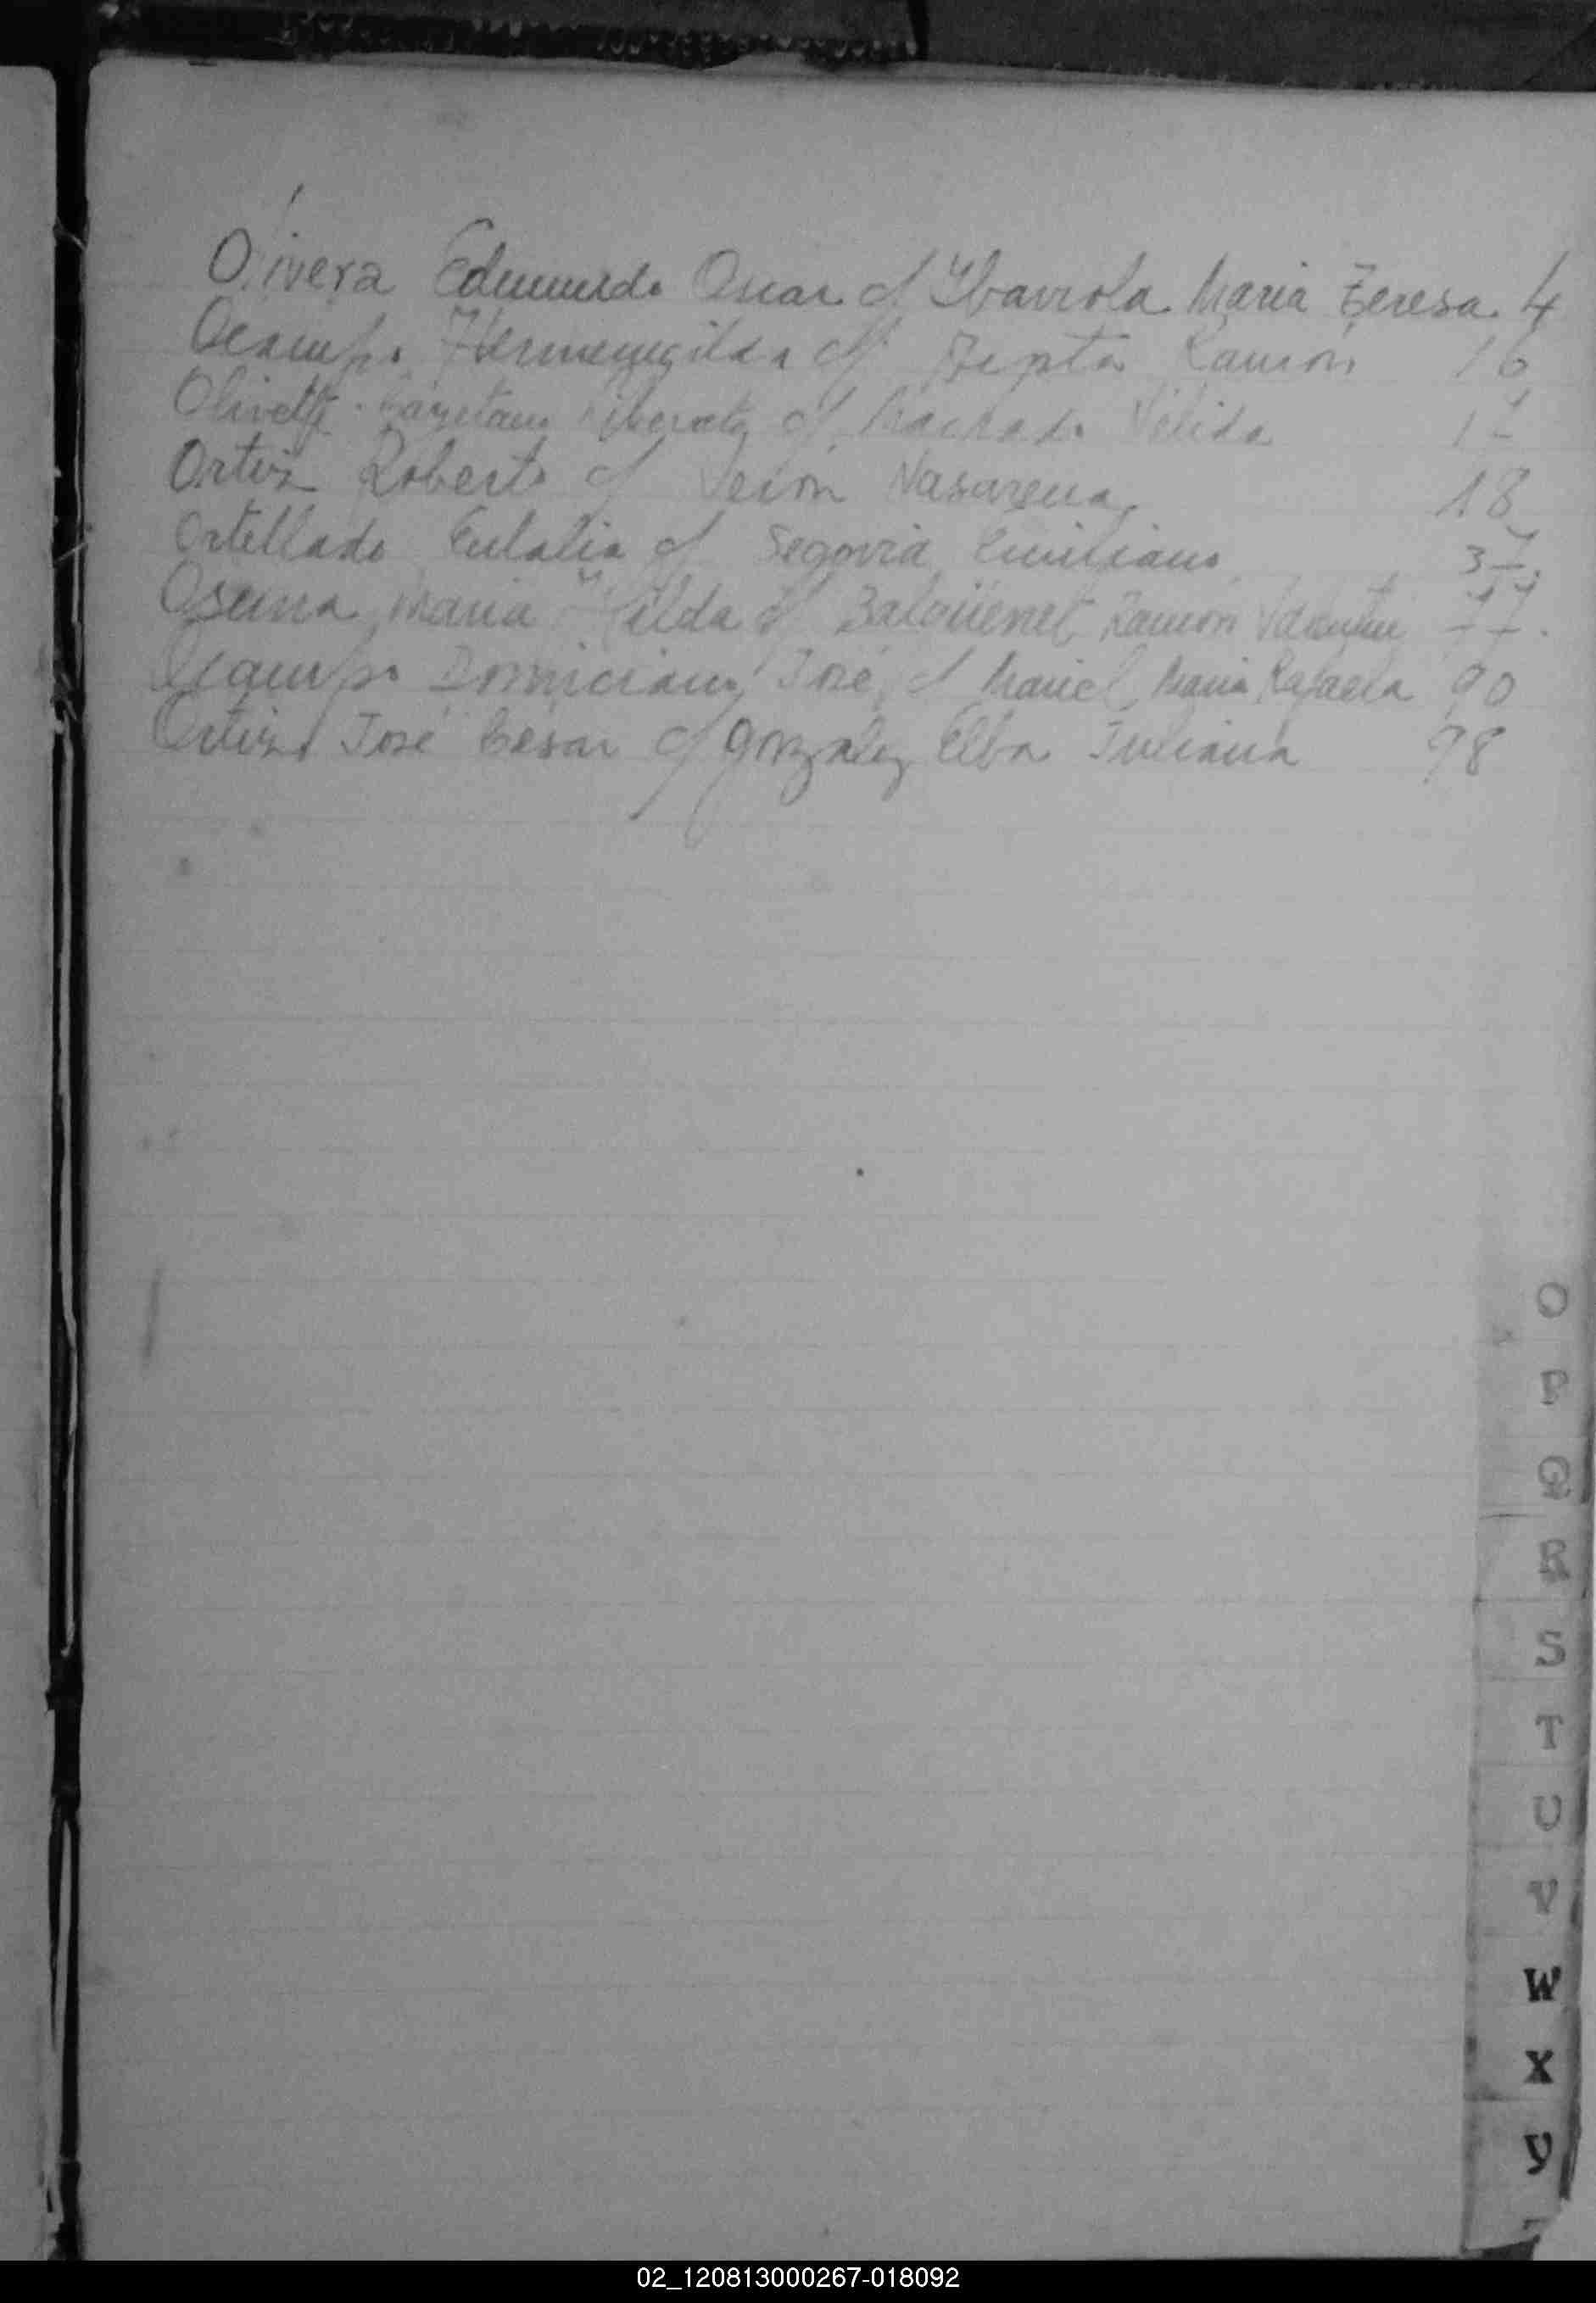 Olivera Edmundo Oscar c/ Ybarrola Maria Teresa. 4
Ocampo Hermenegilda c/ Ramón 16
Olivetti Cayetano Liberato c/ Machado Nélida 17
Ortiz Roberto c/ Verón Nasarena 18
Ortellado Eulalia c/ Segovia Emiliano 37.
Osuna Maria Hilda c/ Ramón Valentin 77.
Ocampo Domiciano José c/ Maciel Maria Rafaela 90
Ortiz José Cesar c/ Gonzalez Elba Juliana 98
O
P
Q
R
S
T
U
V
W
X
Y
02_120813000267-018092